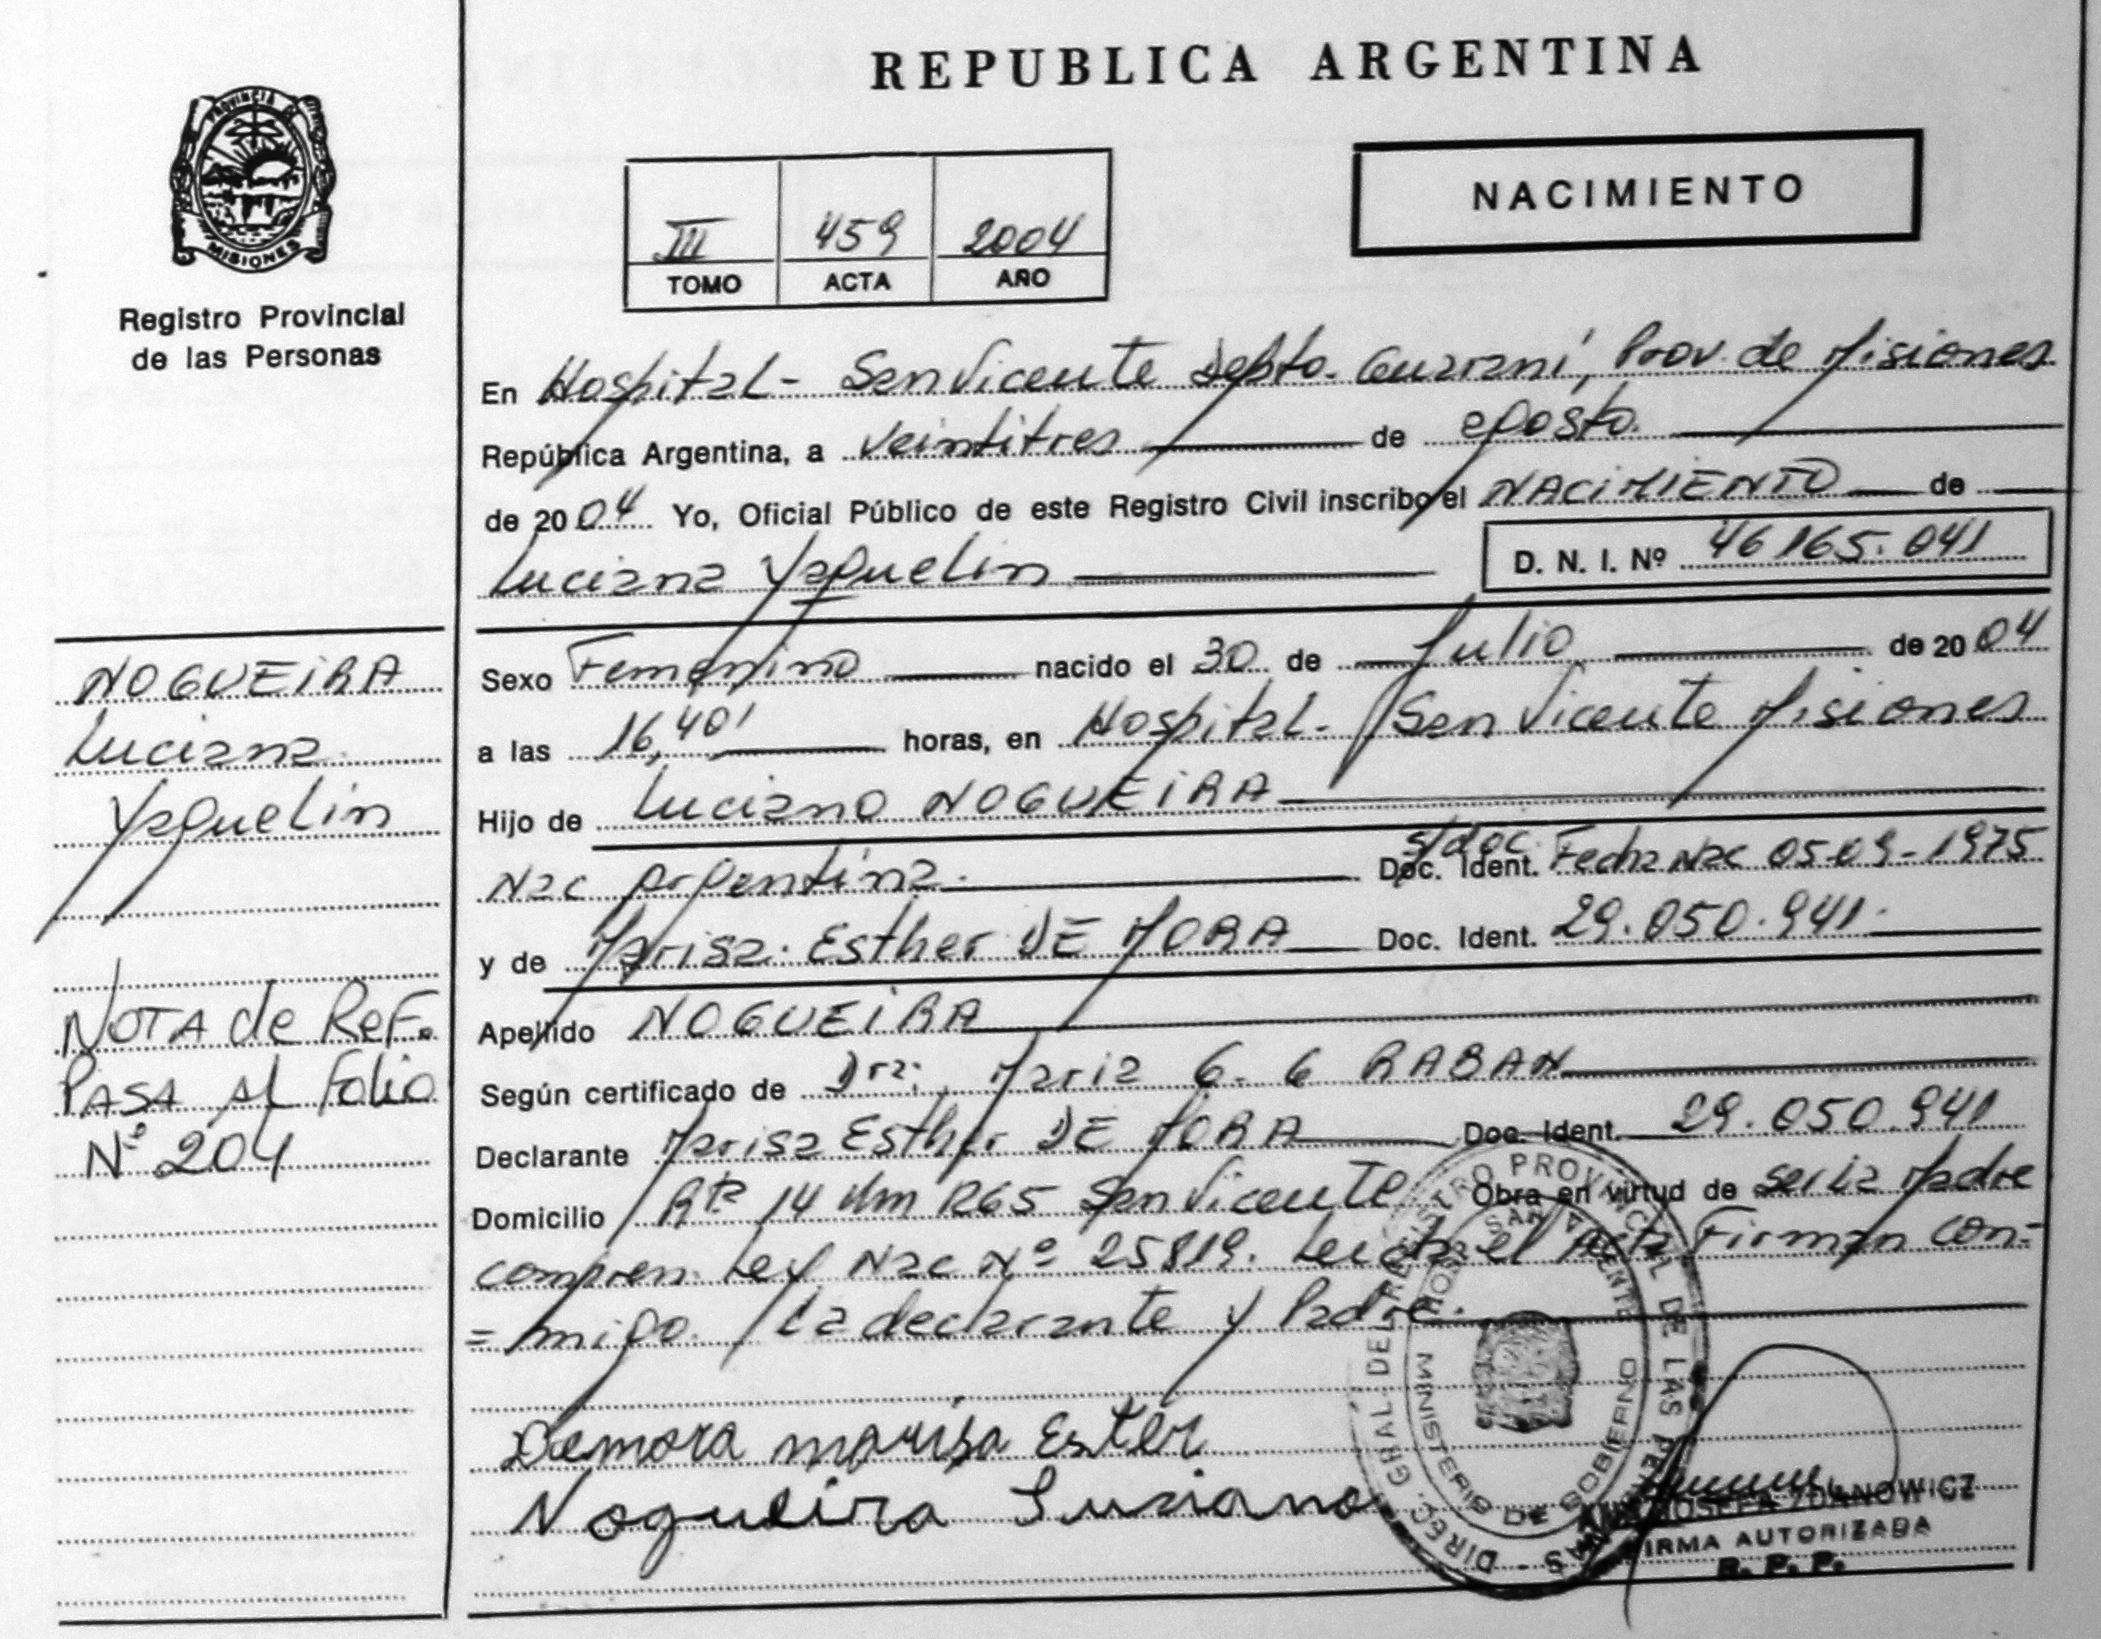 REPUBLICA ARGENTINA
PROVINCIA DE
MISIONES
Registro Provincial
de las Personas
NACIMIENTO
III 459 2004
TOMO ACTA AÑO
En Hospital - San Vicente Depto. Guaraní, Prov. de Misiones
República Argentina, a veintitres de agosto.
de 2004 Yo, Oficial Público de este Registro Civil inscribo el NACIMIENTO de
Luciana Yaquelin
D. N. I. Nº 46165.041
Sexo Femenino nacido el 30 de Julio de 2004
a las 16,40' horas, en Hospital - San Vicente Misiones
Hijo de Luciano NOGUEIRA
s/doc
Nac argentina. Doc. Ident. Fecha Nac 05-09-1975
y de Marisa Esther DE MORA Doc. Ident. 29.050.941
Apellido NOGUEIRA
Según certificado de Dra. Maria G. G RABAN
Declarante Marisa Esther DE MORA Doc. Ident. 29.050.941
Domicilio Rta 14 Km 1265 San Vicente Obra en virtud de ser la Madre
compren. Ley Nac Nº 25819. Leida el Acta Firman con-
= migo. La declarante y Padre.
Demora marisa Ester
Nogueira Luciano
NOGUEIRA
Luciana
Yaquelin
NOTA de Ref.
PASA Al Folio
Nº 204
DIREC. GRAL. DEL REGISTRO PROVINCIAL DE LAS PERSONAS
HOSP. SAN VICENTE
MINISTERIO DE GOBIERNO
JOSEFA ZDANOWICZ
FIRMA AUTORIZADA
R. P. P.